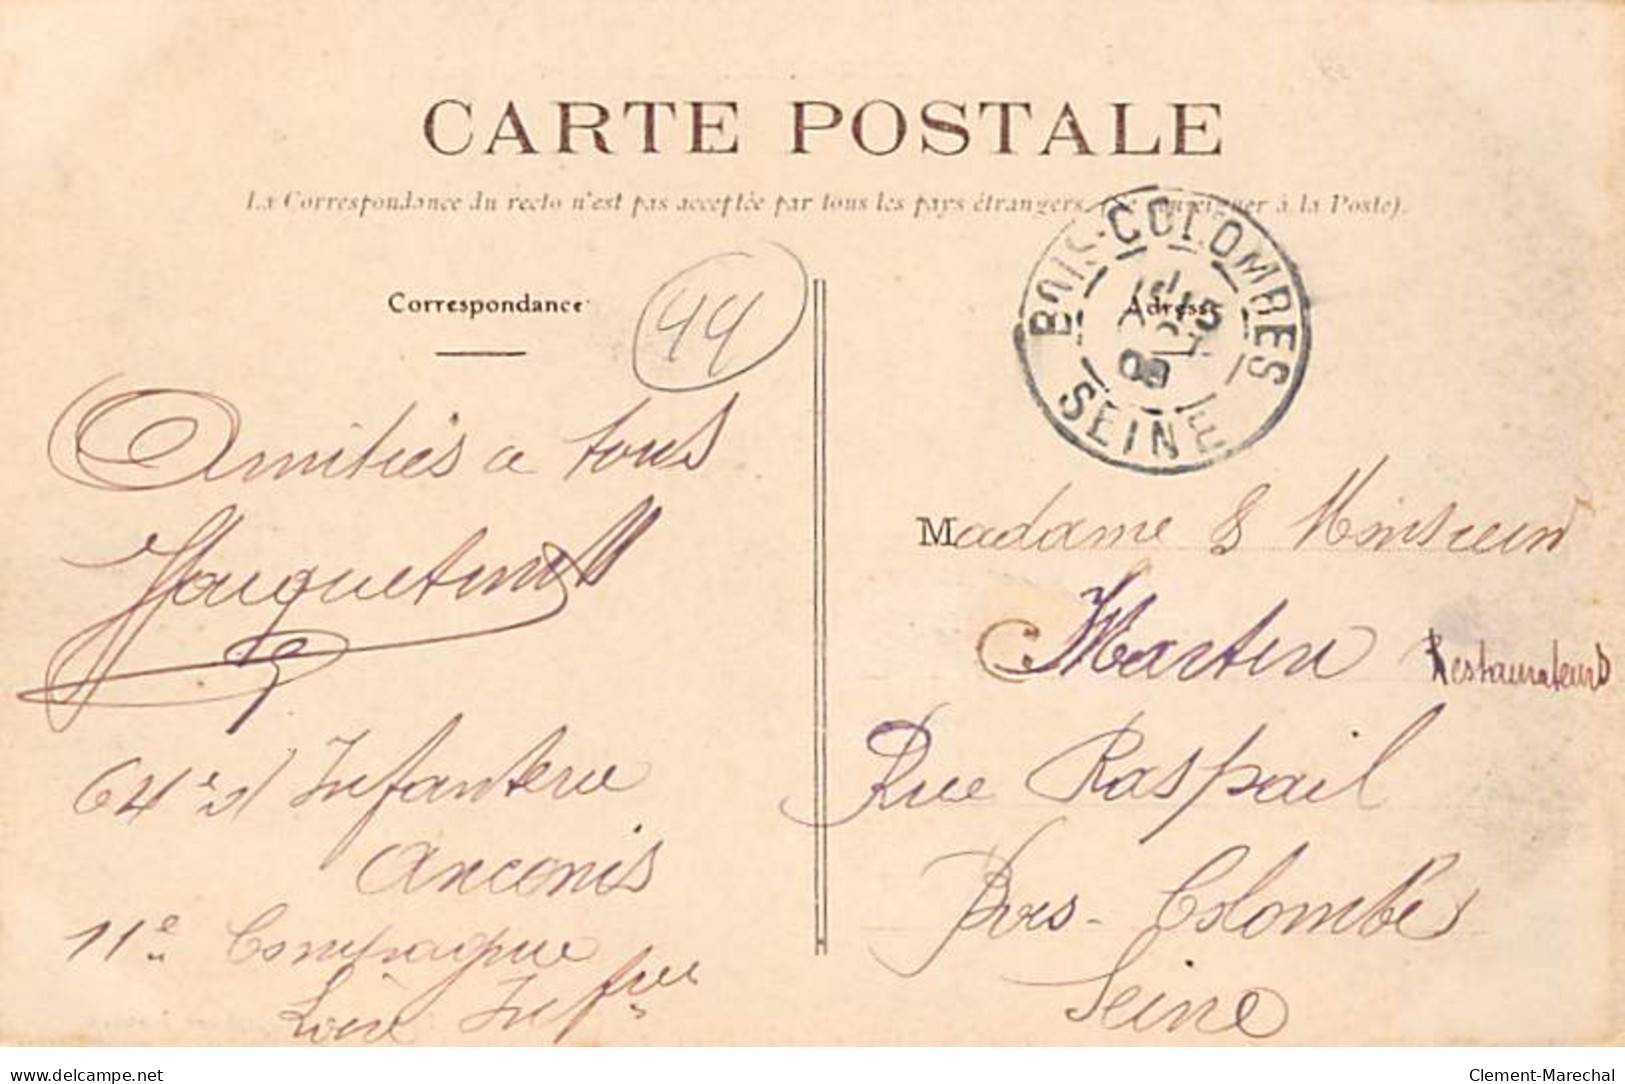 CARTE POSTALE
La Correspondance du recto n'est pas acceptée par tous les pays étrangers à la Poste).
Correspondance
44
Amitiés a tous
64e d'Infanterie
Anconis
11e Compagnie
Loire Infre
BOIS-COLOMBES
15
09
SEINE
Adresse
Madame & Monsieur
Martin Restaurateurs
Rue Raspail
Bois-Colombes
Seine
delcampe.net
Clement-Marechal